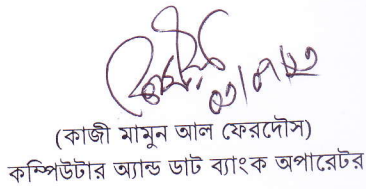 (কাজী মামুন আল ফেরদৌস)
কম্পিউটার অ্যান্ড ডাট ব্যাংক অপারেটর